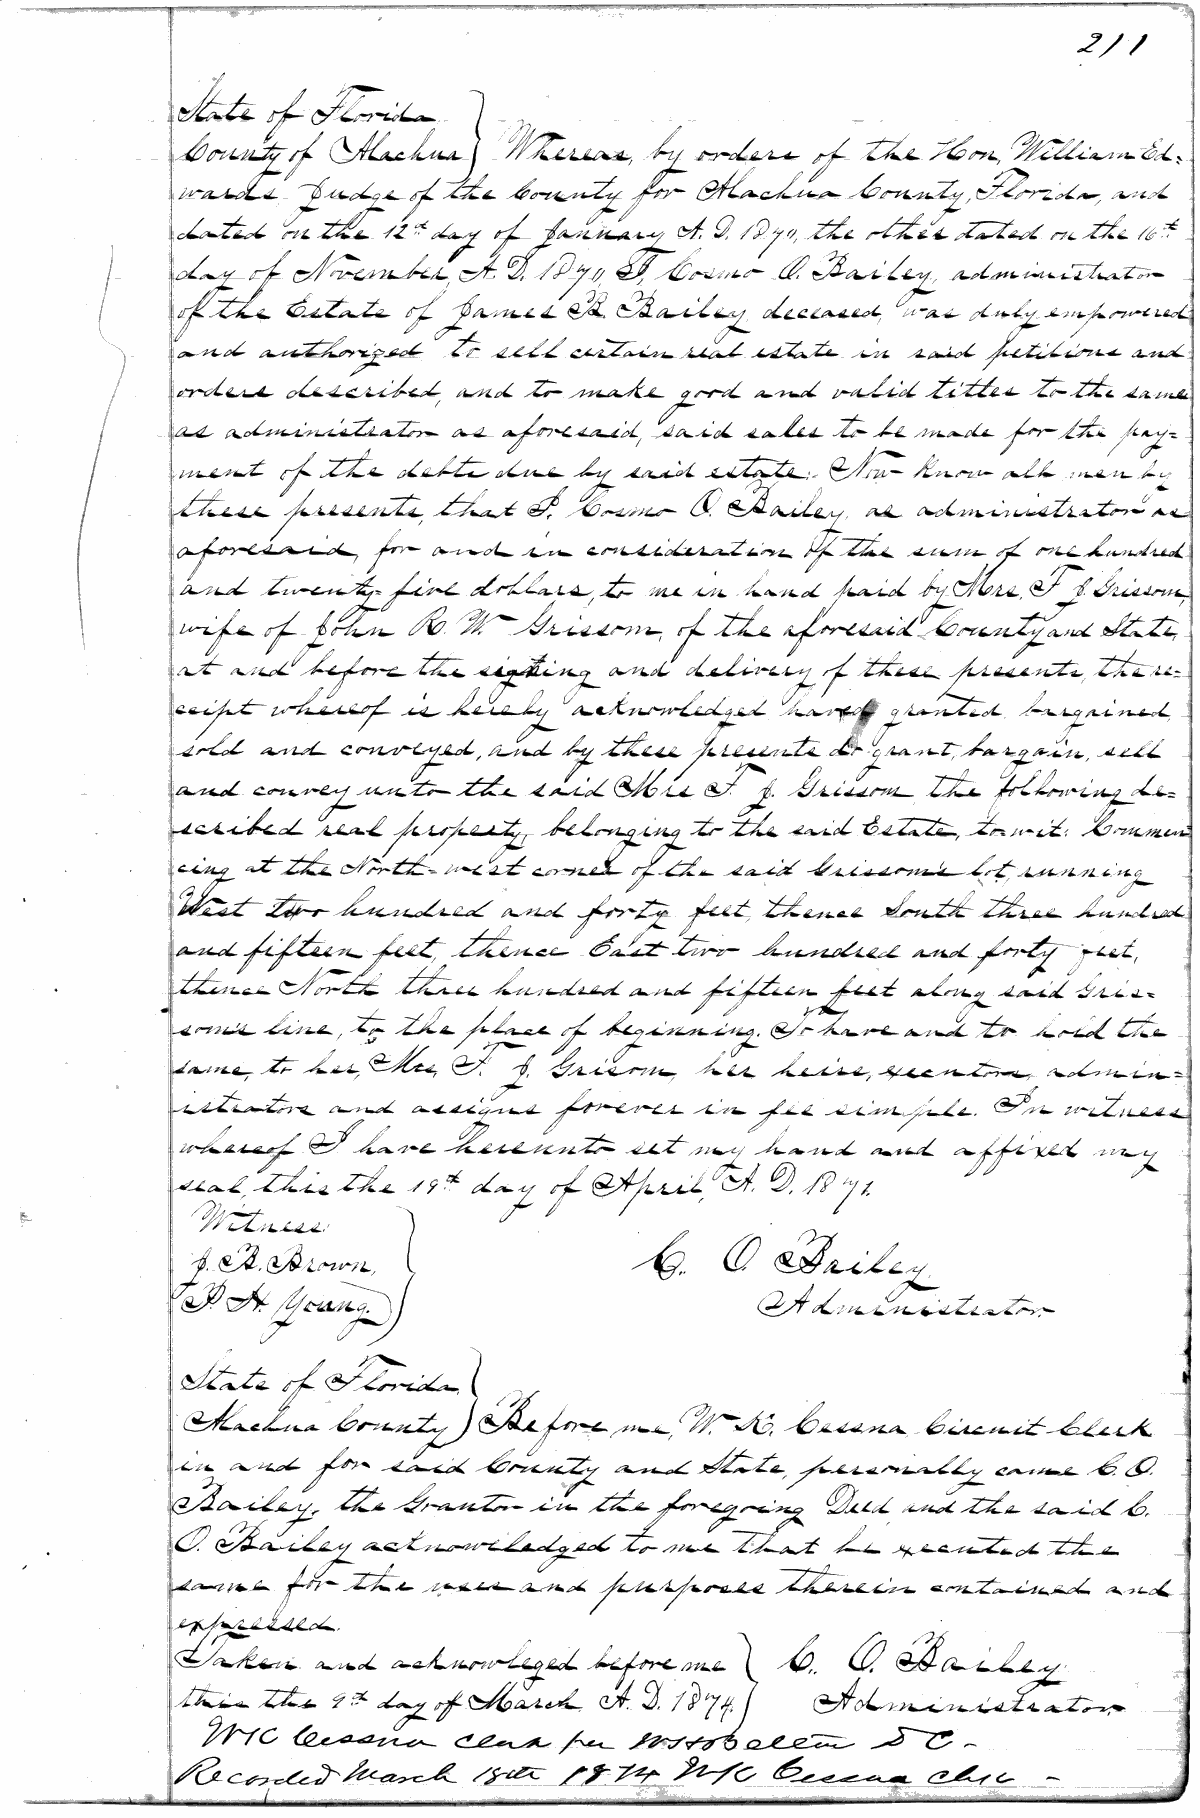 211
State of Florida
County of Alachua) Whereas, by orders of the Hon, William Ed=
wards Judge of the County for Alachua County, Florida, and
dated on the 12th day of January A. D. 1870, the other dated on the 16th
day of November, A. D. 1870, I, Cosmo O. Bailey, administrator
of the Estate of James B. Bailey, deceased, was duly empowered
and authorized to sell certain real estate in said petitions and
orders described, and to make good and valid titles to the same
as administrator as aforesaid, said sales to be made for the pay=
ment of the debts due by said estate: Now know all men by
these presents, that I, Cosmo O. Bailey, as administrator as
aforesaid, for and in consideration of the sum of one hundred
and twenty-five dollars, to me in hand paid by Mrs. F J. Grissom,
wife of John R. W. Grissom, of the aforesaid County and State,
at and before the sealing and delivery of these presents, the re=
ceipt whereof is hereby acknowledged have granted, bargained,
sold and conveyed, and by these presents do grant, bargain, sell
and convey unto the said Mrs F. J. Grissom the following de=
scribed real property, belonging to the said Estate, to-wit: Commen
cing at the North-west corner of the said Grissom's lot, running
West two hundred and forty feet, thence South three hundred
and fifteen feet, thence East two hundred and forty feet,
thence North three hundred and fifteen feet along said Gris=
som's line, to the place of beginning. To have and to hold the
same, to her, Mrs, F. J. Grisom, her heirs, executors, admin=
istrators and assigns forever in fee simple. In witness
whereof I have hereunto set my hand and affixed my
seal, this the 19th day of April, A. D. 1871.
Witness:
J. B. Brown,
P. H. Young.
C. O. Bailey
Administrator
State of Florida
Alachua County) Before me, W. K. Cessna Circuit Clerk
in and for said County and State, personally came C. O.
Bailey, the Grantor in the foregoing Deed and the said C.
O. Bailey acknowledged to me that he executed the
same for the uses and purposes therein contained and
expressed.
Taken and acknowleged before me
this the 9th day of March A. D. 1874.
C. O. Bailey
Administrator
WK Cessna Clerk per D C -
Recorded March 18th 1874 W K Cessna Clerk -